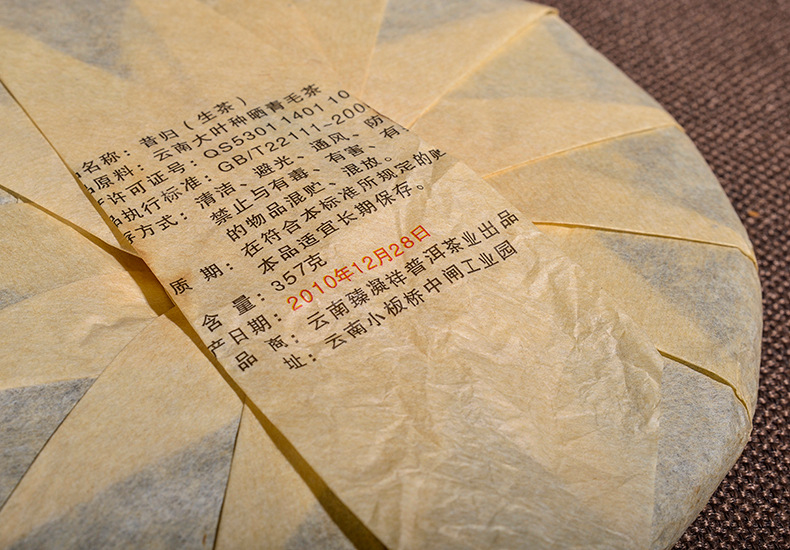 品名称：昔归（生茶）
品原料：云南大叶种晒青毛茶
许可证号：QS5301 1401 10
品执行标准：GB/T22111~200
方式：清洁、避光、通风、防
禁止与有毒、有害、有
的物品混贮、混放。
质 期：在符合本标准所规定的
本品适宜长期保存。
含 量：357克
产日期：2010年12月28日
品 商：云南臻凝祥普洱茶业出品
址：云南小板桥中闸工业园